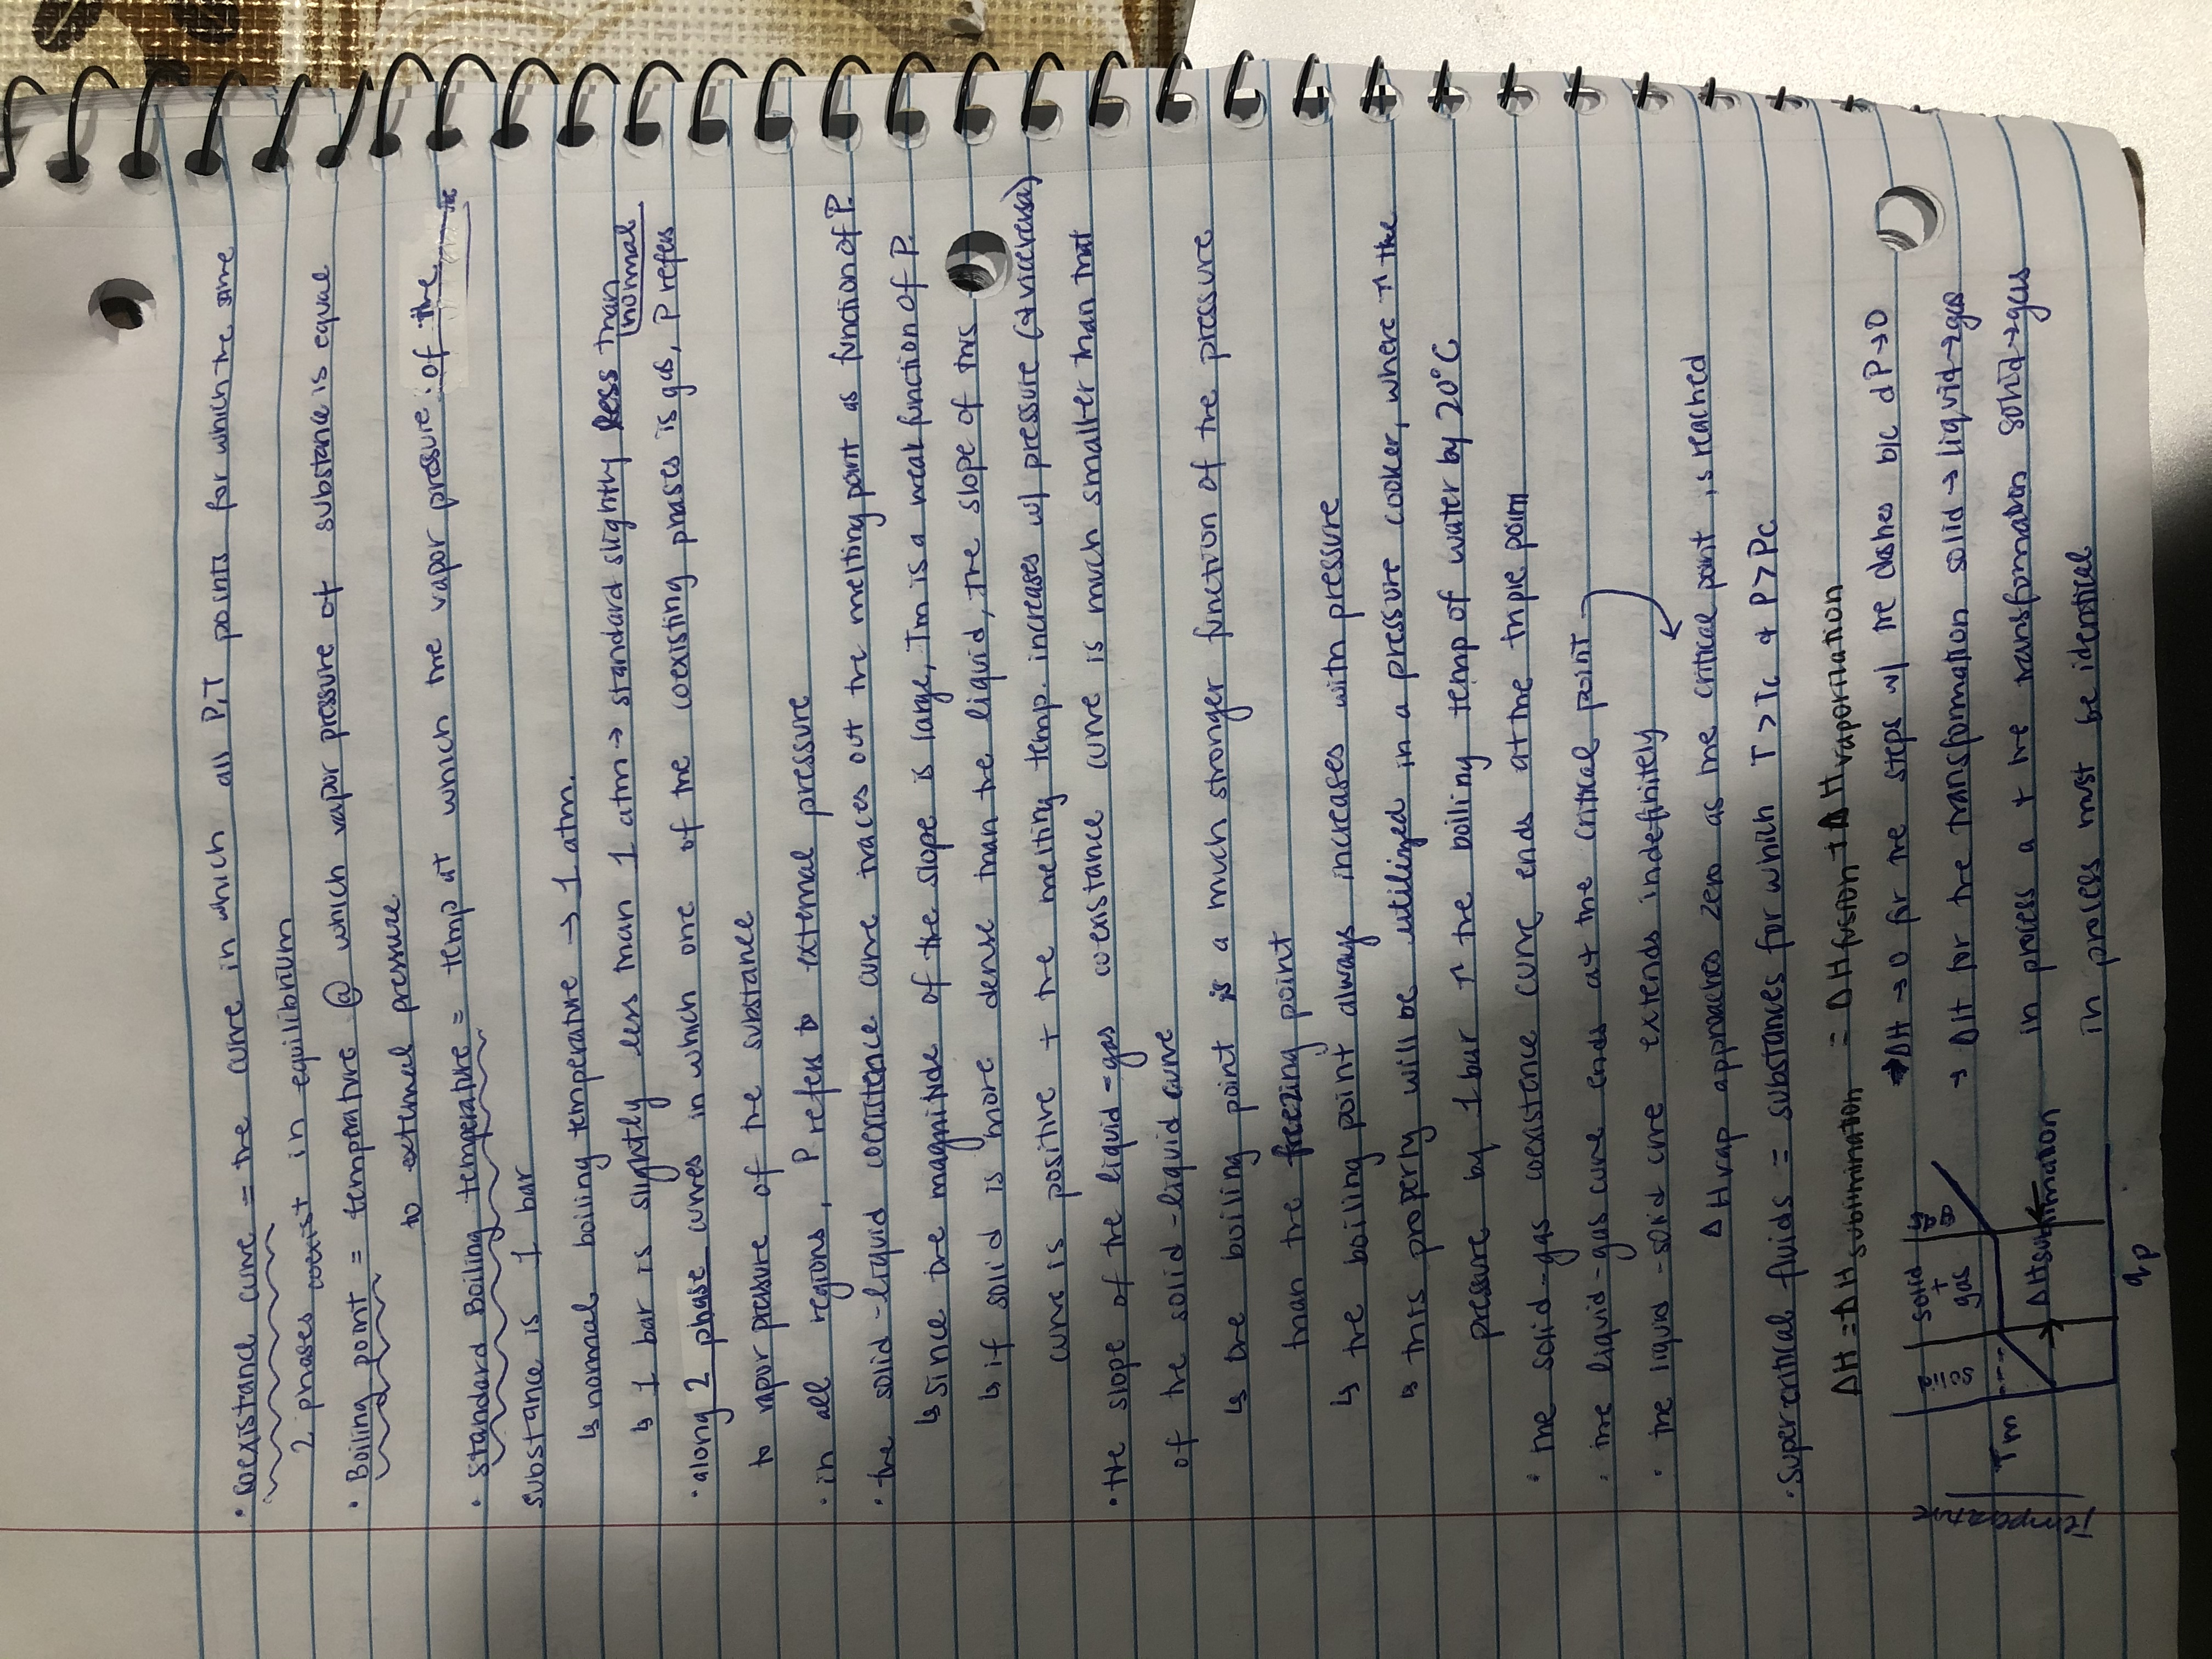 • Coexistance curve = the curve in which all P,T points for which the same
2 phases coexist in equilibrium
• Boiling point = temperature @ which vapor pressure of substance is equal
to external pressure
• Standard Boiling temperature = temp at which the vapor pressure of the
substance is 1 bar
↳ normal boiling temperature → 1 atm.
↳ 1 bar is slightly less than 1 atm → standard slightly less than
normal
• along 2 phase curves in which one of the coexisting phases is gas, P refers
to vapor pressure of the substance
• in all regions, P refers to external pressure
• the solid-liquid coexistence curve traces out the melting point as function of P.
↳ Since the magnitude of the slope is large, Tm is a weak function of P.
↳ if solid is more dense than the liquid, the slope of this
curve is positive + the melting temp. increases w/ pressure (& viceversa)
• the slope of the liquid-gas coexistance curve is much smaller than that
of the solid-liquid curve
↳ the boiling point is a much stronger function of the pressure
than the freezing point
↳ the boiling point always increases with pressure
↳ this property will be utilized in a pressure cooker, where ↑ the
pressure by 1 bar ↑ the boiling temp of water by 20°C
• the solid-gas coexistence curve ends at the triple point
• the liquid-gas curve ends at the critical point
• the liquid-solid curve extends indefinitely
ΔHvap approaches zero as the critical point is reached
• Supercritical fluids = substances for which T > Tc & P > Pc
ΔH = ΔH sublimination = ΔH fusion + ΔH vaporization
→ ΔH → 0 for the steps w/ the dashes b/c dP→0
→ ΔH for the transformation solid → liquid → gas
in process a + the transformation solid → gas
in process must be identical
Temperature
solid
solid
+
gas
gas
Tm
ΔHsublimation
qp